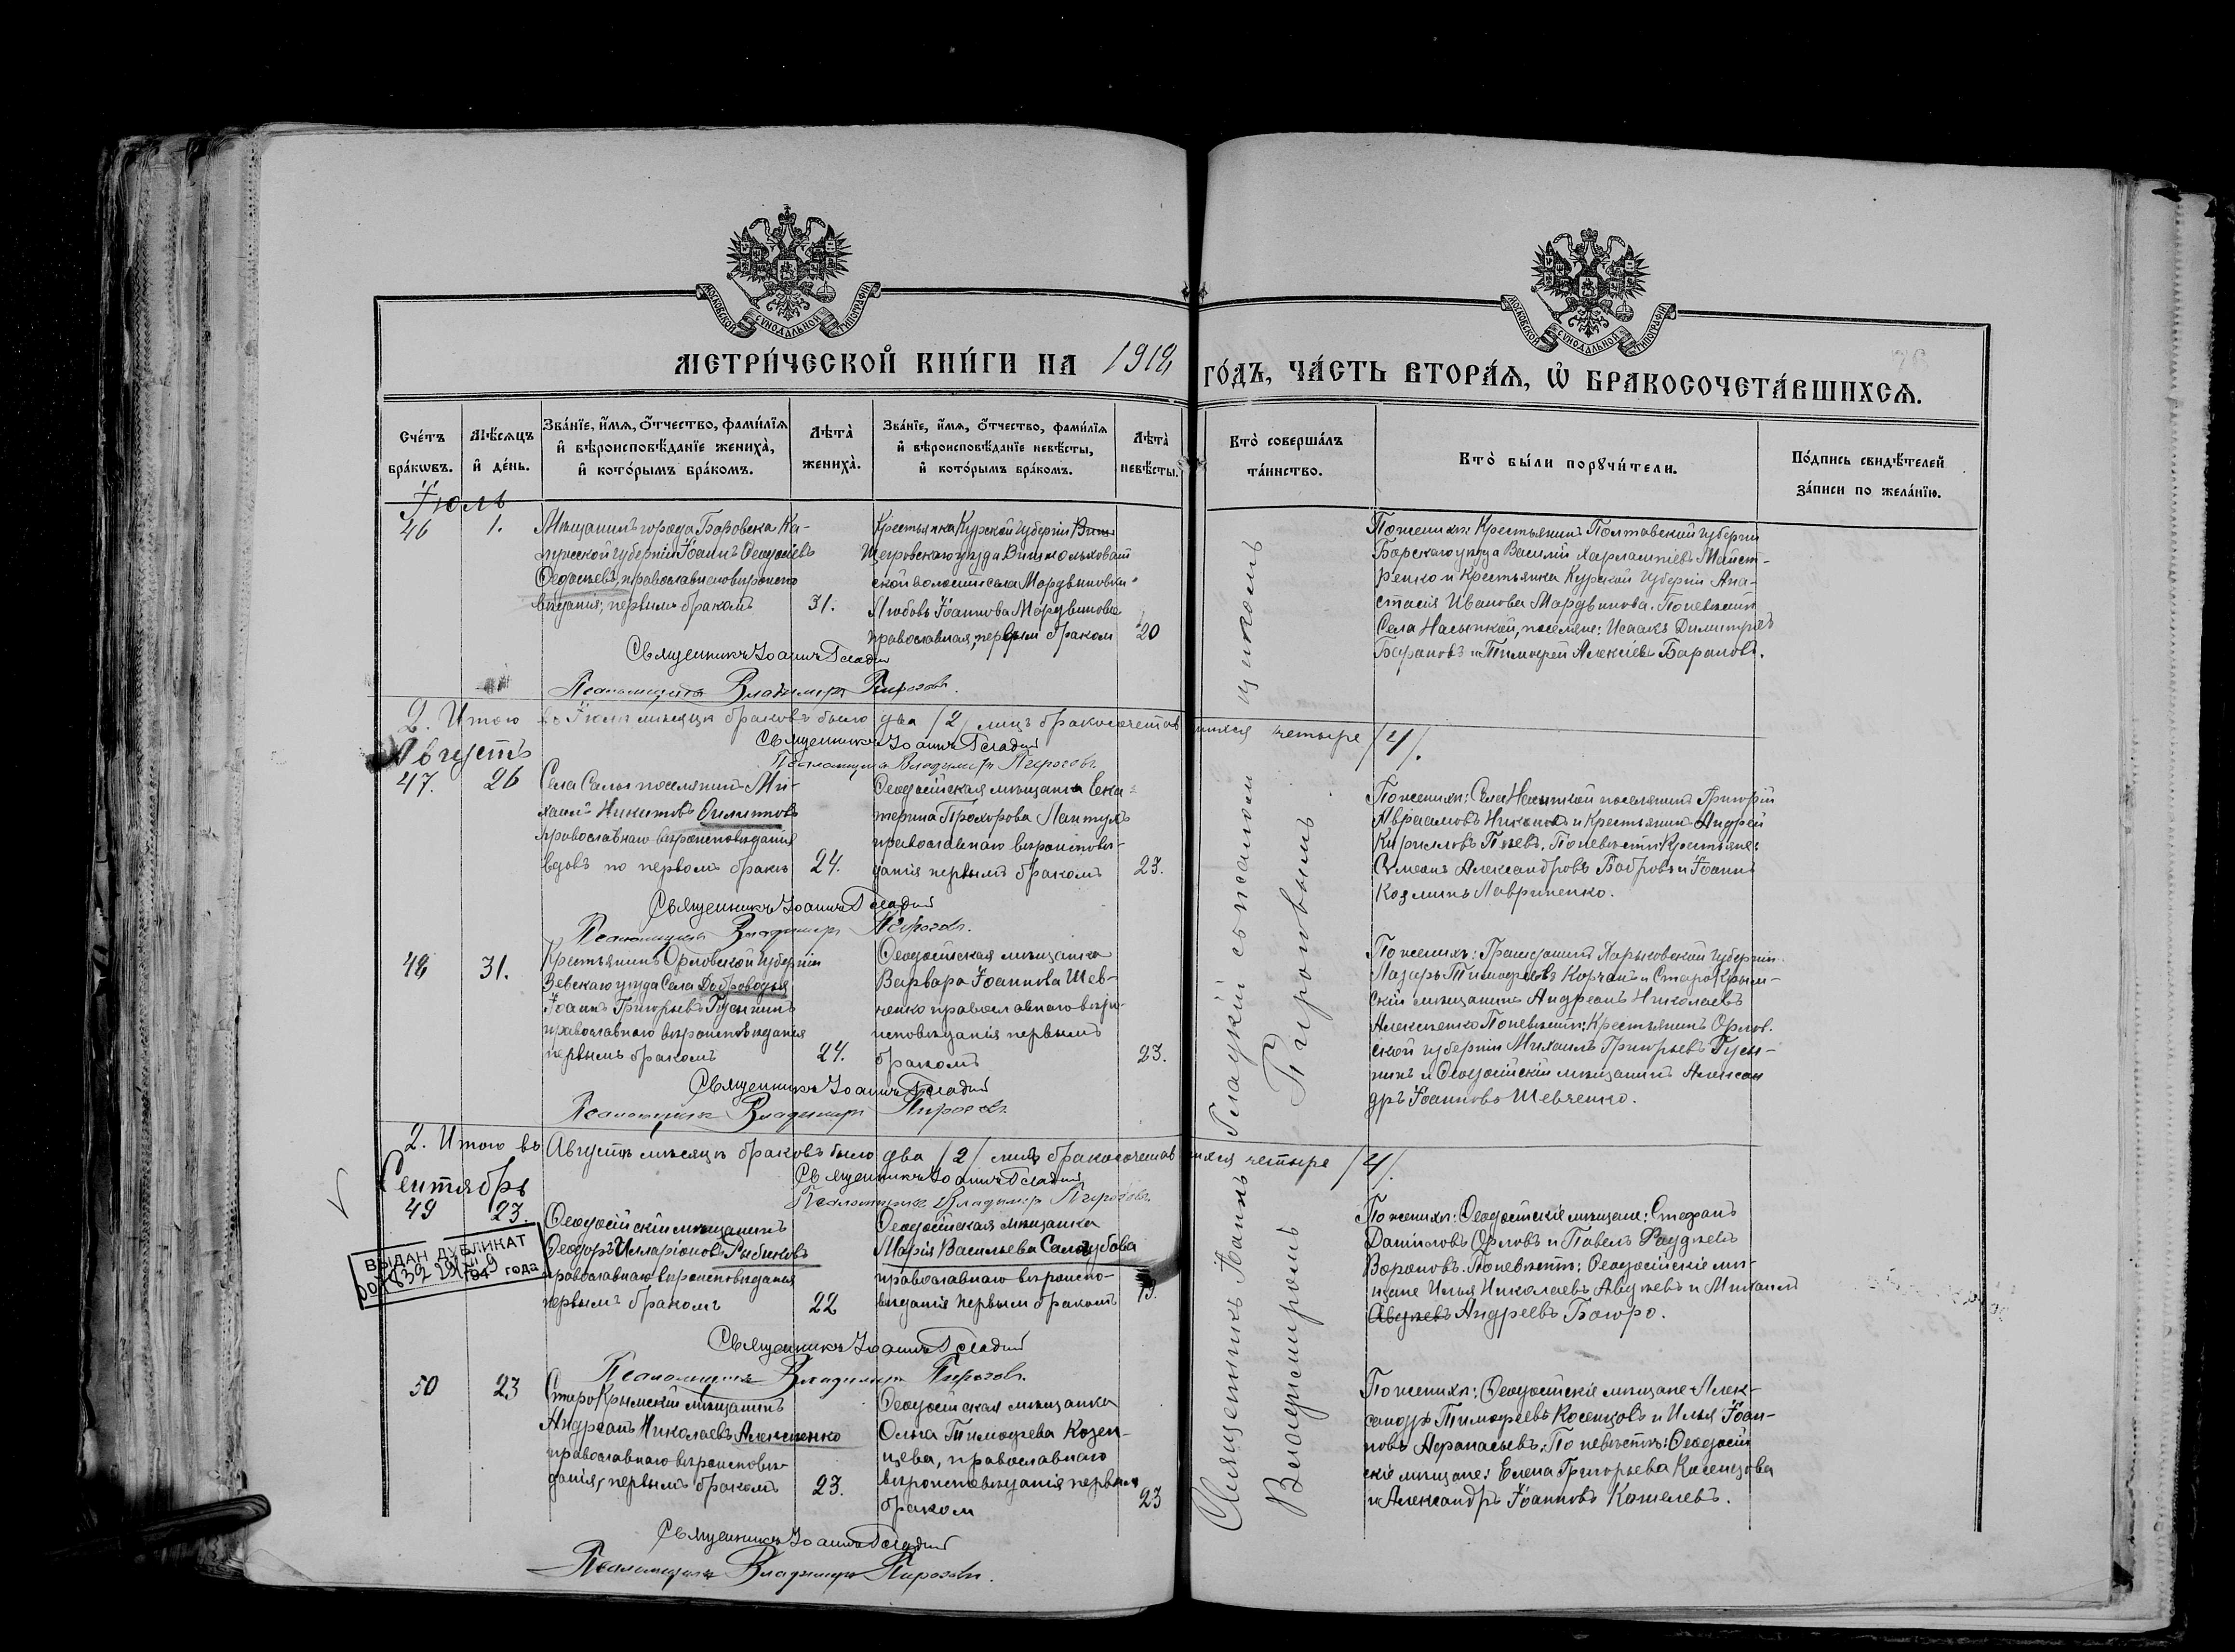 МОСКОВСКОЙ СУНОДАЛЬНОЙ ТИПОГРАФІИ
МОСКОВСКОЙ СУНОДАЛЬНОЙ ТИПОГРАФІИ
МЕТРИ́ЧЕСКОЙ КНИ́ГИ НА 1918 ГО́ДЪ, ЧА́СТЬ ВТОРА́Я, Ѡ БРАКОСОЧЕТА́ВШИХСЯ.
Сче́тъ бра́кѡвъ.
Мѣ́сяцъ и де́нь.
Зва́нїе, и́мя, ѻ҆́тчество, фами́лїя
и вѣроисповѣ́данїе жениха̀,
и кото́рымъ бра́комъ.
Лѣта̀ жениха̀.
Зва́нїе, и́мя, ѻ҆́тчество, фами́лїя
и вѣроисповѣ́данїе невѣ́сты,
и кото́рымъ бра́комъ.
Лѣта̀ невѣ́сты.
Кто̀ соверша́лъ та́инство.
Кто̀ бы́ли порꙋчи́тели.
По́дпись свидѣ́телей
за́писи по жела́нїю.
Іюль
46
1.
Мѣщанинъ города Боровска Ка-
лужской губерніи Іоаннъ Ѳеодосіевъ
Ѳедосѣевъ, православнаго вѣроиспо
вѣданія, первымъ бракомъ
31.
Крестьянка Курской губерніи
Щигровскаго уѣзда Вишнольховат
ской волости села Мордвиновки
Любовь Іоаннова Мордвинова
православная, первым браком
20
Поженихѣ: Крестьянинъ Полтавской губерніи
уѣзда Василій Харлампіевъ Майст-
ренко и Крестьянка Курской губерніи Ана-
стасія Иванова Мардвинова. Поневѣстѣ
Села Насыпкой, поселяне: Исаакъ Димитріевъ
Барановъ и Тимофей Алексіевъ Барановъ.
Священникъ Іоаннъ Гладкій
Псаломщикъ Владимиръ Пироговъ.
2. Итого въ Іюлѣ мѣсяцѣ браковъ было два /2/ лицъ бракосочетавшихся четыре /4/.
Священникъ Іоаннъ Гладкій
Псаломщикъ Владимиръ Пироговъ
Августъ
47.
26
Села Салы поселянинъ Ми-
хаилъ Никитовъ
православнаго вѣроисповѣданія
вдовъ по первомъ бракѣ
24.
Ѳеодосійская мѣщанка Ека-
терина Прохорова Лантухъ
православнаго вѣроисповѣ-
данія первымъ бракомъ
23.
Поженихѣ: Села Насыпкой поселянинъ Григорій
Авраамовъ Никоновъ и Крестьянинъ Андрей
Кирилловъ. Поневѣстѣ: Крестьяне:
Симеонъ Александровъ Бобровъ и Іоаннъ
Козминъ Лавриненко.
Священникъ Іоаннъ Гладкій
Псаломщикъ Владимиръ Пироговъ.
48
31.
Крестьянинъ Орловской губерніи
уѣзда Села Доброводья
Іоаннъ Григорьевъ Гусынинъ
православнаго вѣроисповѣданія
первымъ бракомъ
24.
Ѳеодосійская мѣщанка
Варвара Іоаннова Шев-
ченко православнаго вѣро-
исповѣданія первымъ
бракомъ
23.
Поженихѣ: Гражданинъ Харьковской губерніи
Лазарь Тимофеевъ Корчанъ и СтароКрым-
скій мѣщанинъ Андреанъ Николаевъ
Алексеенко Поневѣстѣ: Крестьянинъ Орлов.
ской губерніи Михаилъ Григорьевъ Гусы-
нинъ и Ѳеодосійскій мѣщанинъ Алексан
дръ Іоанновъ Шевченко.
Священникъ Іоаннъ Гладкій
Псаломщикъ Владимиръ Пироговъ
2. Итого въ Августѣ мѣсяцѣ браковъ было два /2/ лицъ бракосочетавшихся четыре /4/.
Священникъ Іоаннъ Гладкій
Псаломщикъ Владимиръ Пироговъ
Сентябрь
49
23
Ѳеодосійскій мѣщанинъ
Ѳеодоръ Илларіоновъ Рыбниковъ
православнаго вѣроисповѣданія
первымъ бракомъ
22
Ѳеодосійская мѣщанка
Марія Васильева Салогубова
православнаго вѣроиспо-
вѣданія первым бракомъ
19.
Поженихѣ: Ѳеодосійскіе мѣщане: Стефанъ
Даниловъ Орловъ и Павелъ
Вороновъ. Поневѣстѣ: Ѳеодосійскіе мѣ-
щане Илья Николаевъ Авджевъ и Михаилъ
Авджевъ Андреевъ
ВЫДАН ДУБЛИКАТ
194 года
Священникъ Іоаннъ Гладкій
Псаломщикъ Владимиръ Пироговъ.
50
23
СтароКрымскій мѣщанинъ
Андреанъ Николаевъ Алексеенко
православнаго вѣроисповѣ-
данія, первымъ бракомъ
23.
Ѳеодосійская мѣщанка
Ольга Тимофеева Козен-
цева, православнаго
вѣроисповѣданія первым
браком
23
Поженихѣ: Ѳеодосійскіе мѣщане Алек-
сандръ Тимофеевъ Косенцовъ и Илья Іоан-
новъ Афанасьевъ. По невѣстѣ: Ѳеодосій
скіе мѣщане: Елена Григорьева Косенцова
и Александръ Іоанновъ Кошелевъ.
Священникъ Іоаннъ Гладкій
Псаломщикъ Владимиръ Пироговъ.
Священникъ Іоаннъ Гладкій съ псаломщикомъ
Владимиромъ Пироговымъ